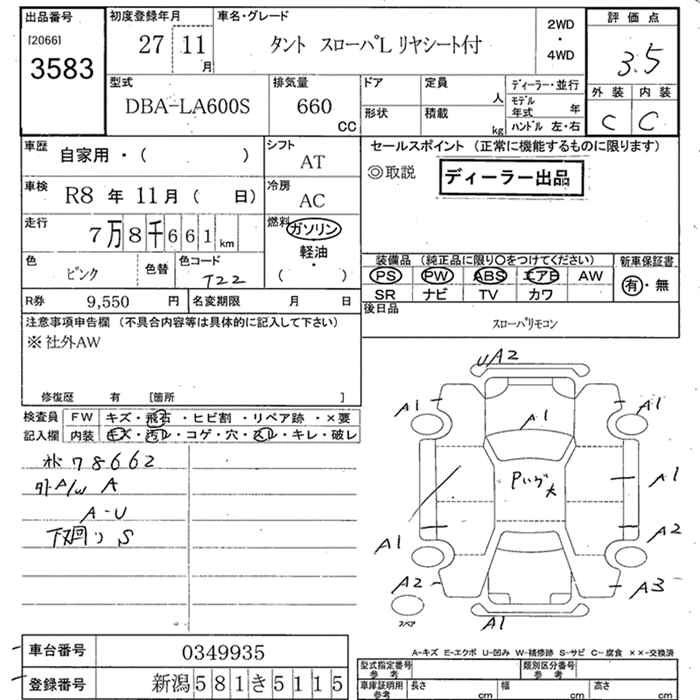 出品番号 初度登録年月 車名・グレード 2WD ・ 4WD 評価点
[2066] 3583 27 11月 タント スローパL リヤシート付 3.5
型式 排気量 ドア 定員 人 ディーラー・並行 外装 内装
DBA-LA600S 660 CC 形状 積載 kg モデル年式 年 ハンドル 左・右 C C
車歴 自家用・( ) シフト AT セールスポイント (正常に機能するものに限ります)
◎取説 ディーラー出品
車検 R8 年 11月 ( 日) 冷房 AC
走行 7万8千661km 燃料 ガソリン
軽油
( ・ )
色 ピンク 色替 色コード T22
装備品 (純正品に限り○をつけてください) 新車保証書
PS PW ABS エアB AW 有・無
SR ナビ TV カワ
R券 9,550 円 名変期限 月 日
後日品
スローパリモコン
注意事項申告欄 (不具合内容等は具体的に記入して下さい)
※社外AW
修復歴 有 [箇所 ]
検査員記入欄 FW キズ・飛石・ヒビ割・リペア跡・×要
内装 キズ・汚レ・コゲ・穴・スレ・キレ・破レ
78662
外A/W A
A-U
下廻り S
UA2
A1 A1
A1
A1
A1 A2
A2 A3
A1
スペア
A-キズ E-エクボ U-凹み W-補修跡 S-サビ C-腐食 ××-交換済
車台番号 0349935
登録番号 新潟581き5115
型式指定番号 参考 類別区分番号 参考
車庫証明用 参考 長さ cm 幅 cm 高さ cm